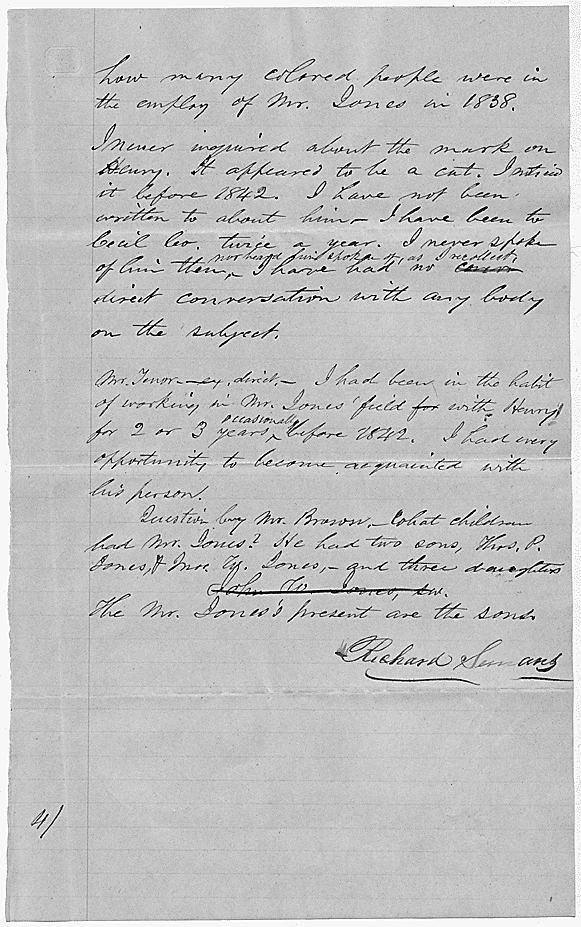 how many colored people were in
the employ of Mr. Jones in 1838.
I never inquired about the mark on
Henry. It appeared to be a cut. I noticed
it before 1842. I have not been
written to about him – I have been to
Cecil Co. twice a year. I never spoke
nor heard him spoken of, as I recollect,
of him then, – I have had no
direct conversation with any body
on the subject.
Mr. Tenor – ex, direct, – I had been in the habit
of working in Mr. Jones' field for with Henry
occasionally
for 2 or 3 years, before 1842. I had every
opportunity to become acquainted with
his person.
Question by Mr. Brown – What children
had Mr. Jones? He had two sons, Thos. P.
Jones, & Jno. W. Jones, – and three daughters
John W. Jones,
The Mr. Jones's present are the sons
Richard
4/